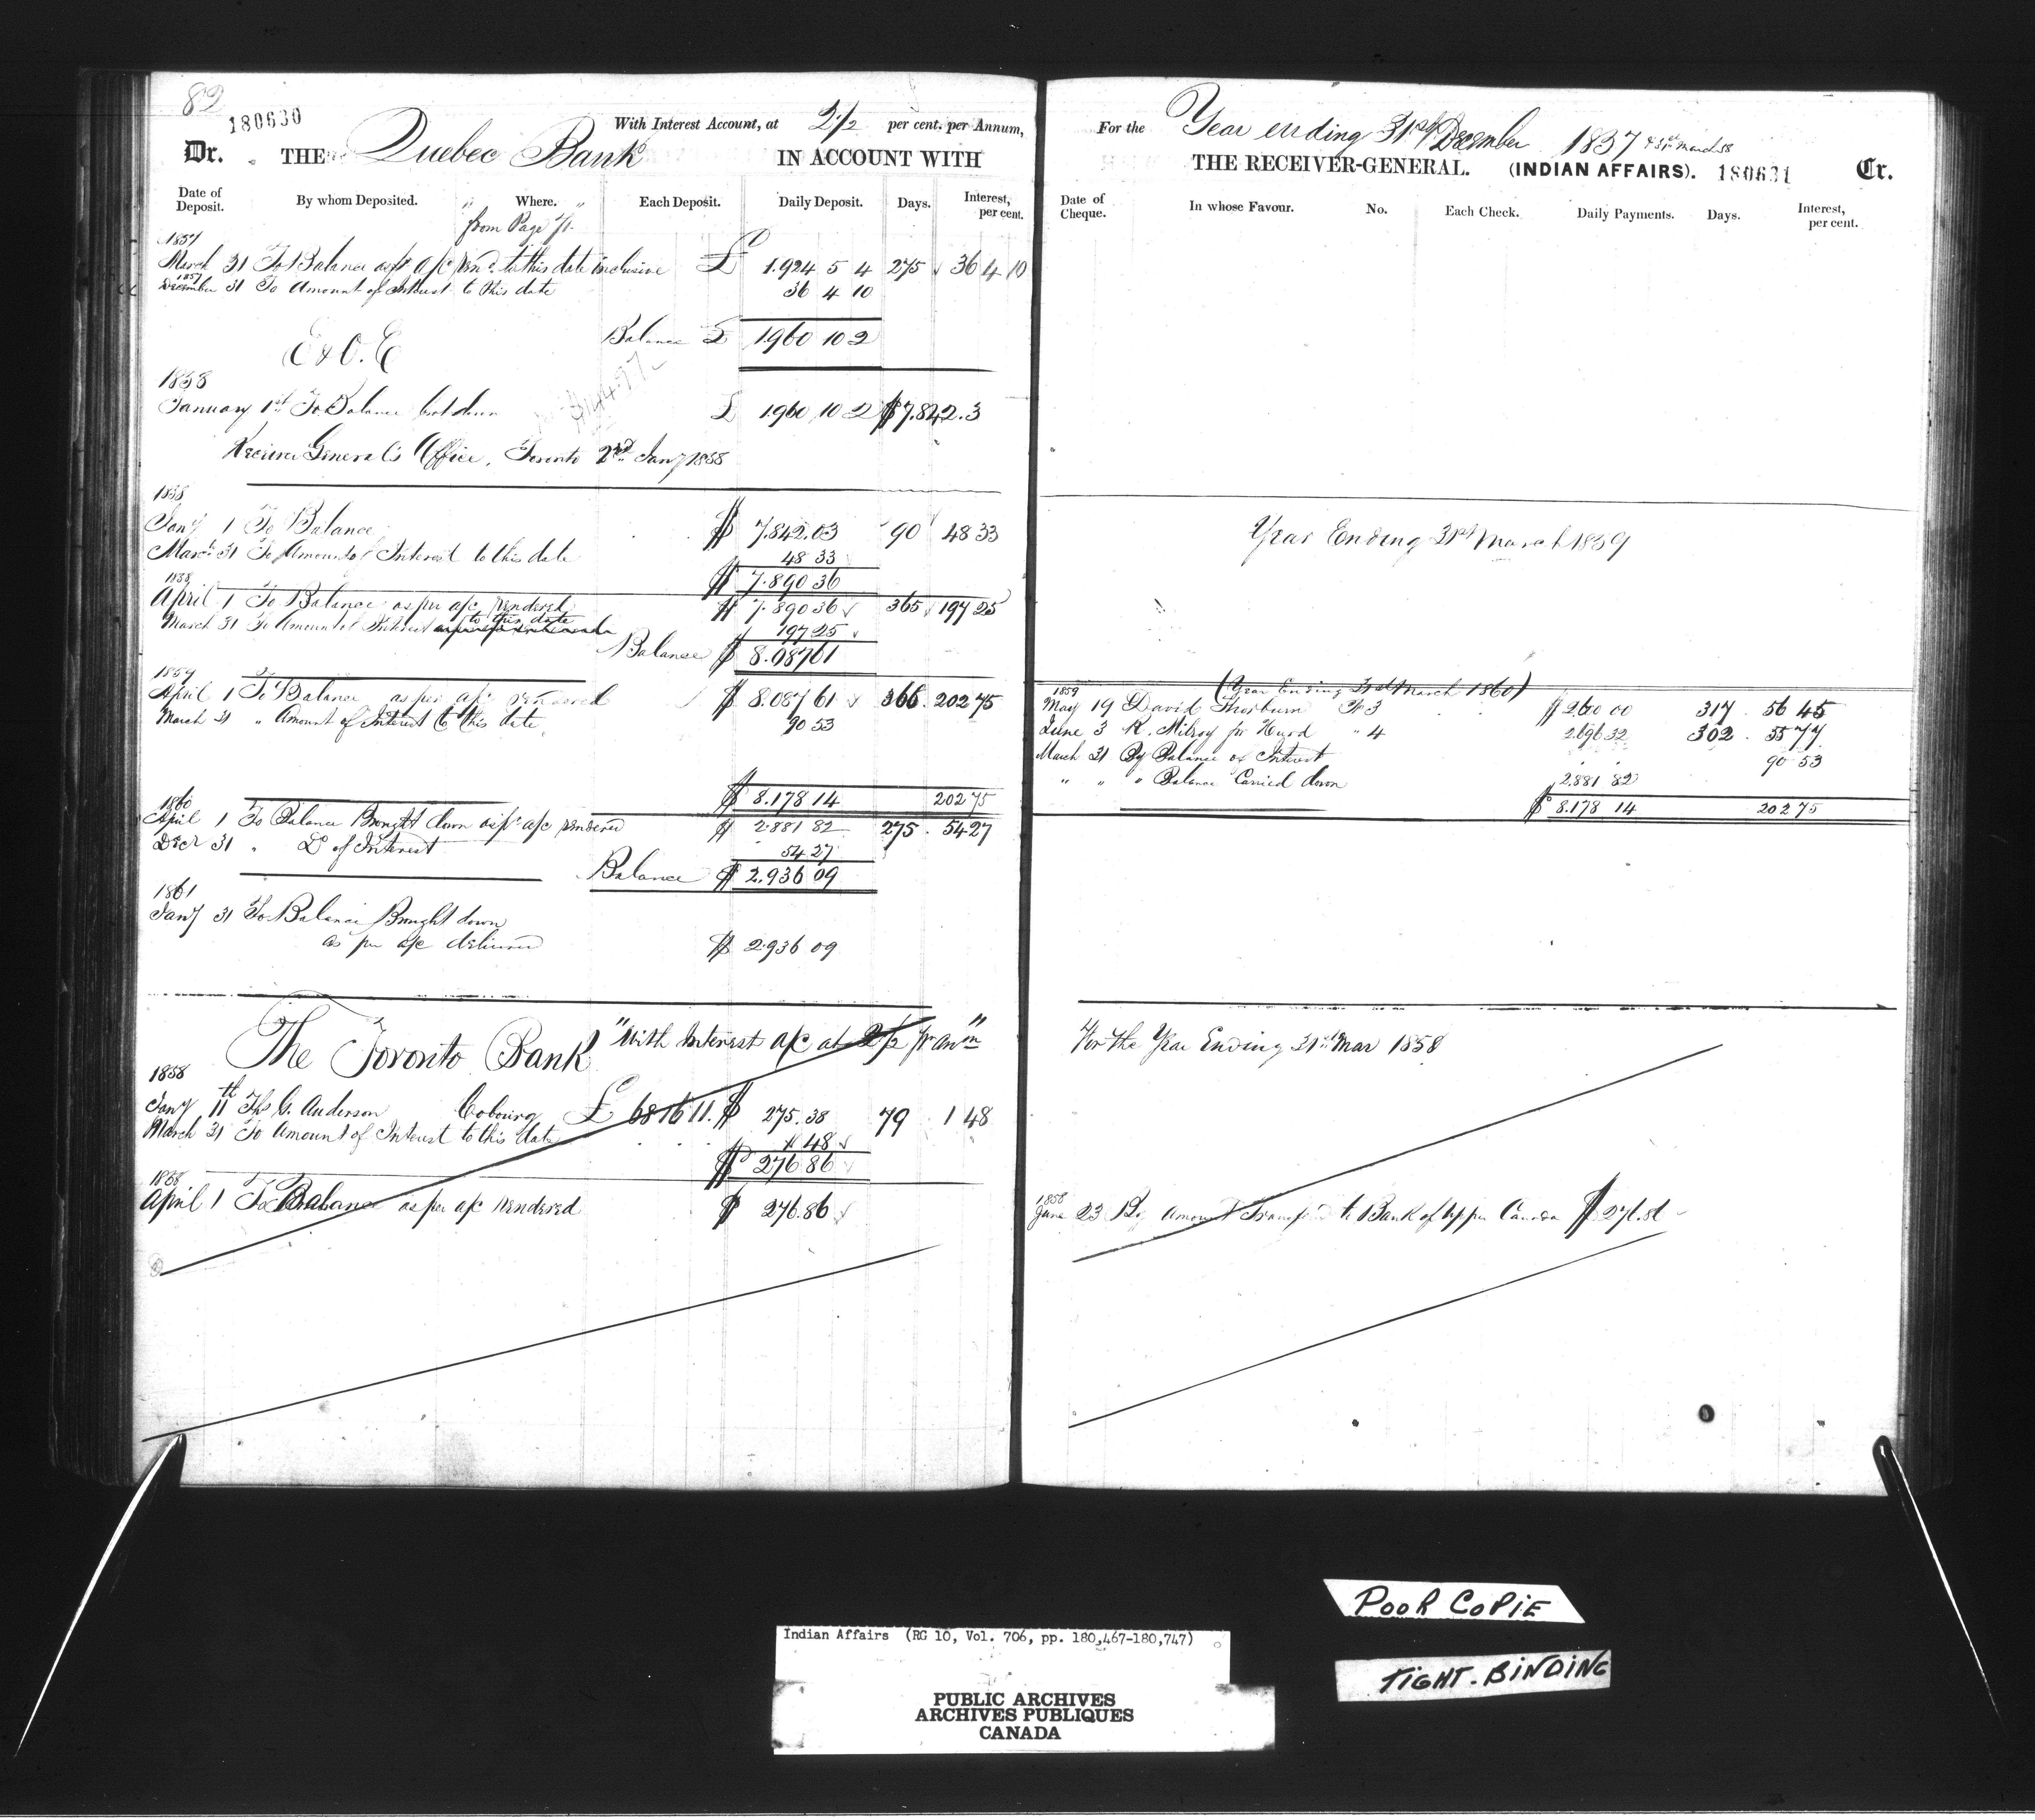 82
180630
With Interest Account, at 2 1/2 per cent. per Annum,
Dr. THE Quebec Bank IN ACCOUNT WITH
Date of Deposit. By whom Deposited. Where. Each Deposit. Daily Deposit. Days. Interest, per cent.
from Page
1857
March 31 To Balance as pr a/c rend. to this date inclusive £ 1.924 5 4 275 36 4 10
1857
December 31 To Amount of Interest to this date 36 4 10
E & O. E Balance £ 1960 10 2
1858
January 1st To Balance bot down £ 1.960 10 2 $7.842.3
Receiver General's Office, Toronto 2nd Jany 1858
1858
Jany 1 To Balance $ 7.842.03 90 48 33
March 31 To Amount of Interest to this date 48 33
$ 7.890 36
1858
April 1 To Balance as per a/c rendered $ 7.890 36 365 197 25
March 31 To Amount of Interest to this date 197 25
Balance $ 8.087 61
1859
April 1 To Balance as per a/c rendered $ 8.087 61 366 202 75
March 31 " Amount of Interest to this date 90 53
$ 8.178 14 202 75
1860
April 1 To Balance Brought down as pr a/c rendered $ 2.881 82 275 54 27
Decr 31 " Do of Interest 54 27
Balance $ 2.936 09
1861
Jany 31 To Balance Brought down
as per a/c delivered $ 2.936 09
The Toronto Bank "With Interest a/c at 2 1/2 pr anm"
1858
Jany 11th Ths G. Anderson Cobourg £ 68 16 11. $ 275.38 79 1 48
March 31 To Amount of Interest to this date 1 48
$ 276 86
1858
April 1 To Balance as per a/c rendered $ 276.86
For the Year ending 31st December 1857 & 31st March 58
THE RECEIVER-GENERAL. (INDIAN AFFAIRS). 180631 Cr.
Date of Cheque. In whose Favour. No. Each Check. Daily Payments. Days. Interest, per cent.
Year Ending 31st March 1859
(Year Ending 31st March 1860)
1859
May 19 David Thorburn No 3 $ 2.600 00 317 56 45
June 3 R. Milroy for Hurd " 4 2.696 32 302 55 77
March 31 By Balance of Interest 90 53
" " " Balance Carried down 2.881 82
$ 8.178 14 202 75
For the Year Ending 31st Mar 1858
1858
June 23 By Amount Transferd to Bank of Upper Canada $ 276.86
POOR COPIE
TIGHT. BINDING
Indian Affairs (RG 10, Vol. 706, pp. 180,467-180,747)
PUBLIC ARCHIVES
ARCHIVES PUBLIQUES
CANADA